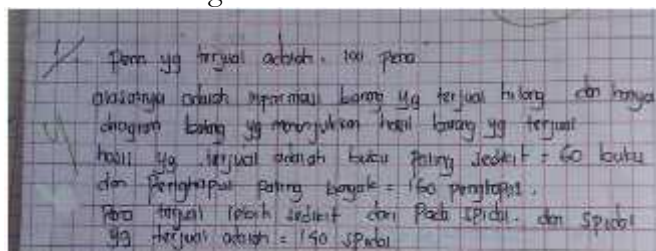 1/ pena yg terjual adalah. 100 pena
alasannya adalah informasi barang yg terjual hilang dan hanya
diagram batang yg menunjukkan hasil barang yg terjual
hasil yg terjual adalah buku paling sedikit = 60 buku
dan Penghapus paling banyak = 160 penghapus.
Pena terjual lebih sedikit dari Pada spidol. dan spidol
yg terjual adalah = 140 spidol